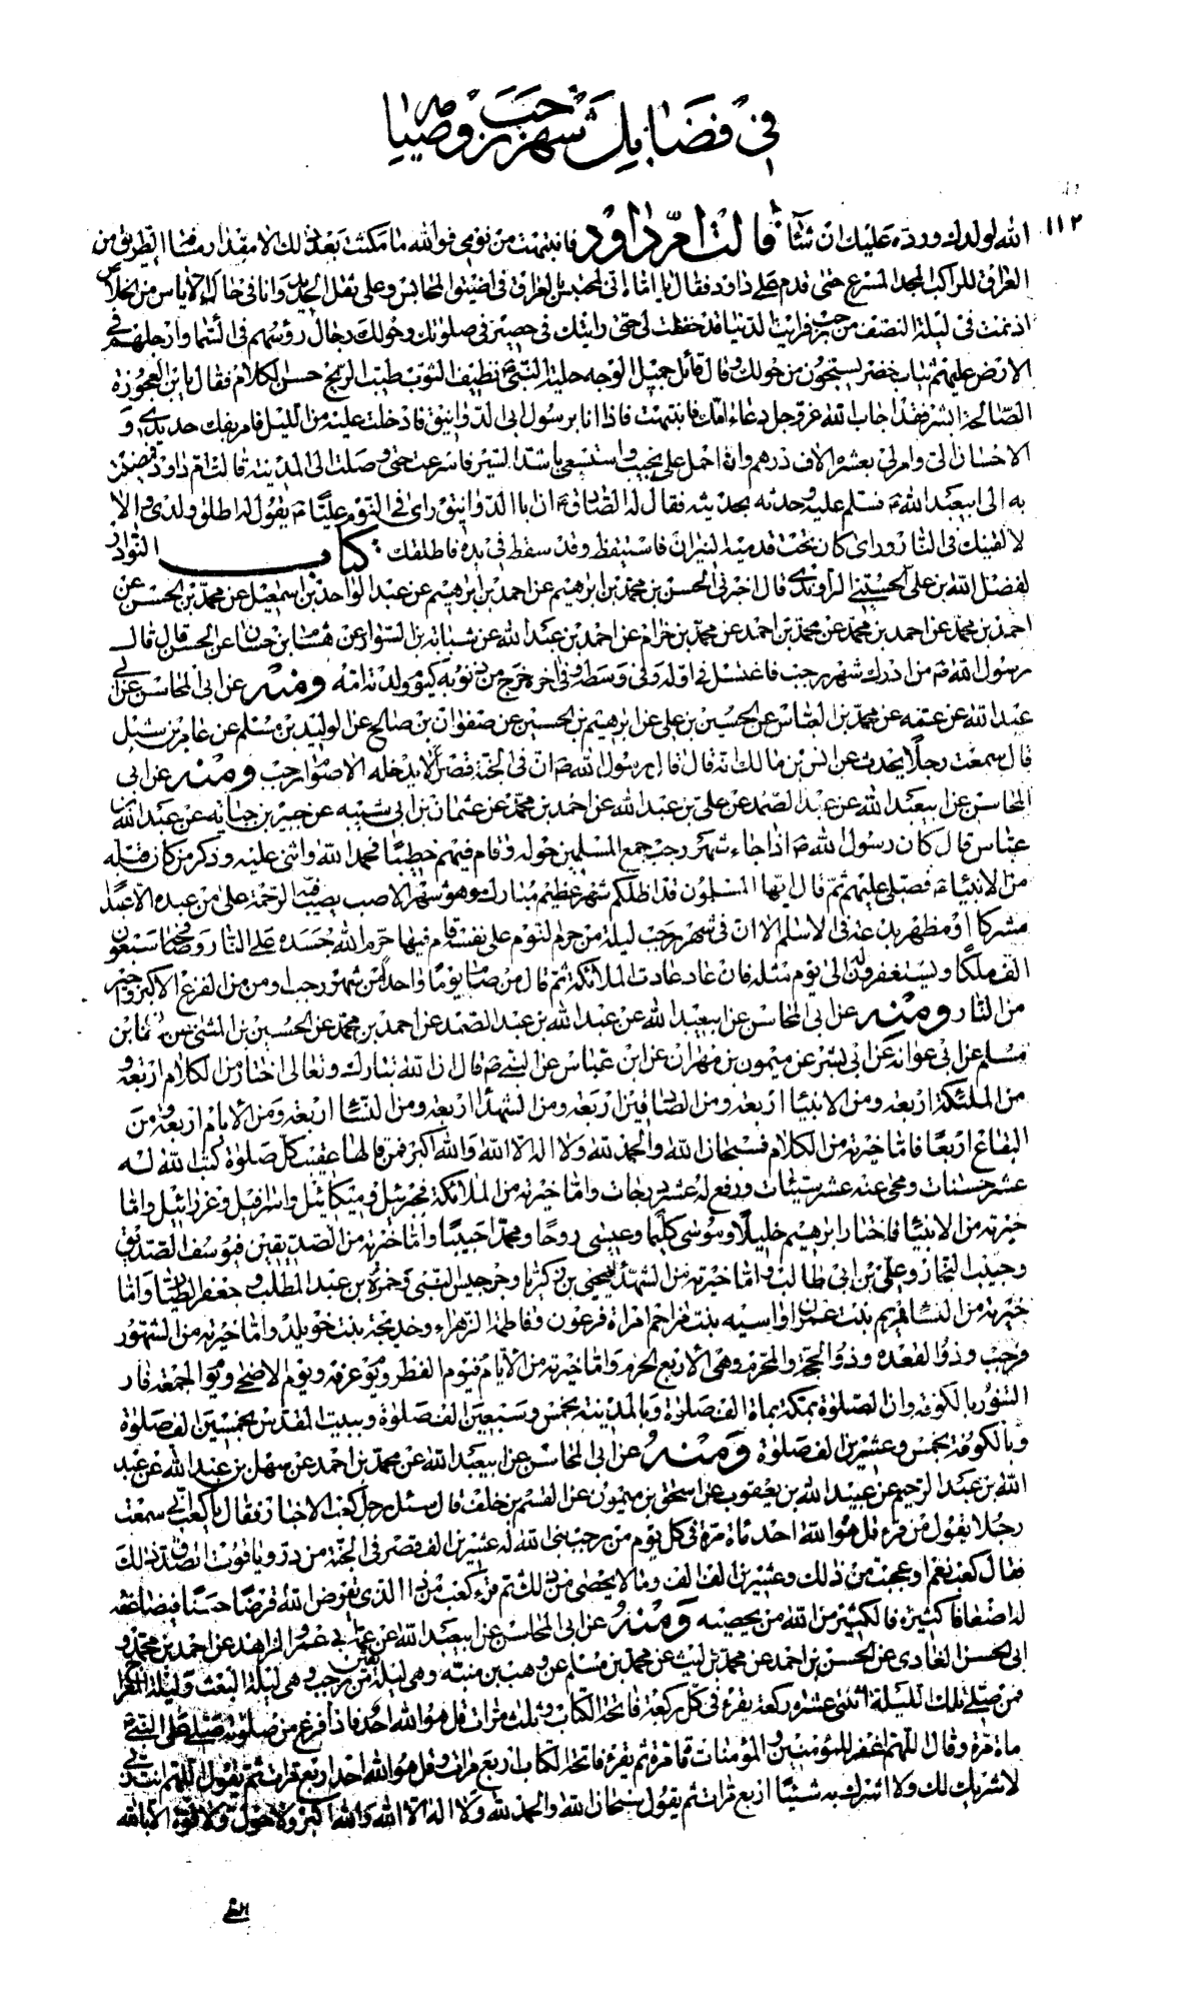 في فضايل شهر رجب وصيامه
١١٢
الله لولدك ورده عليك ان شاء قالت ام داود فانتبهت من نومي فوالله ما مكثت بعد ذلك الا مقدار مسافة الطريق من
العراق للراكب المجد المسرع حتى قدم علي داود فقال يا اماه اني لمحتبس بالعراق في اضيق المحابس وعلي ثقل الحديد وانا في حالة الاياس من الخلاص
اذ نمت في ليلة النصف من رجب فرايت الدنيا قد خفضت لي حتى رايتك في حصير في صلوتك وحولك رجال رؤسهم في السماء وارجلهم في
الارض عليهم ثياب خضر يسبحون من حولك وقال قائل جميل الوجه حلية النبي ص نظيف الثوب طيب الريح حسن الكلام فقال يابن العجوزة
الصالحة ابشر فقد اجاب الله عز وجل دعاء امك فانتبهت فاذا انا برسول ابي الدوانيق فادخلت عليه من الليل فامر بفك حديدي و
الاحسان الي وامر لي بعشرة الاف درهم وان احمل على نجيب واستسعى باشد السير فاسرعت حتى وصلت الى المدينة قالت ام داود فمضيت
به الى ابيعبد الله ع فسلم عليه وحدثه بحديثه فقال له الصادق ع ان ابا الدوانيق راى في النوم عليا ع يقول له اطلق ولدي والا
لالقينك في النار وراى كان تحت قدميه النيران فاستيقظ وقد سقط في يده فاطلقك كتاب النوادر
لفضل الله بن علي الحسيني الراوندي قال اخبرني الحسن بن محمد بن ابرهيم عن احمد بن ابرهيم عن عبد الواحد بن اسمعيل عن محمد بن الحسن عن
احمد بن محمد عن احمد بن محمد عن محمد بن احمد عن محمد بن خزام عن احمد بن عبد الله عن شبابة بن السوار عن هشام بن حسان عن الحسن قال قال
رسول الله ص من ادرك شهر رجب فاغتسل في اوله وفي وسطه وفي اخره خرج من ذنوبه كيوم ولدته امه ومنه عن ابي المحاسن عن ابي
عبد الله عن عمه عن محمد بن العباس عن الحسين بن علي عن ابرهيم بن الحسين عن صفوان بن صالح عن الوليد بن مسلم عن عامر بن شبل
قال سمعت رجلا يحدث عن انس بن مالك انه قال قال رسول الله ص ان في الجنة قصرا لا يدخله الا صوام رجب ومنه عن ابي
المحاسن عن ابيعبد الله عن عبد الصمد عن علي بن عبد الله عن احمد بن محمد عن عثمان بن ابي شيبه عن جبير بن عن عبد الله بن
عباس قال كان رسول الله ص اذا جاء شهر رجب جمع المسلمين حوله وقام فيهم خطيبا فحمد الله واثنى عليه وذكر من كان قبله
من الانبياء ع فصلى عليهم ثم قال ايها المسلمون قد اظلكم شهر عظيم مبارك وهو شهر الاصب يصب فيه الرحمة على من عبده الا عبدا
مشركا او مظهر بدعة في الاسلام الا ان في شهر رجب ليلة من حرم النوم على نفسه قام فيها حرم الله جسده على النار وصافحه سبعون
الف ملك ويستغفرون له الى يوم مثله فان عاد عادت الملائكة ثم قال من صام يوما واحدا من شهر رجب اومن من الفزع الاكبر واجير
من النار ومنه عن ابي المحاسن عن ابيعبد الله عن عبد الله بن عبد الصمد عن احمد بن محمد عن الحسين بن المثنى عن بن
مسلم عن ابي عوانة عن ابي بشر عن ميمون بن مهران عن ابن عباس عن النبي ص قال ان الله تبارك وتعالى اختار من الكلام اربعة و
من الملئكة اربعة ومن الانبياء اربعة ومن الصادقين اربعة ومن الشهداء اربعة ومن النساء اربعة ومن الايام اربعة ومن
البقاع اربعا فاما خيرته من الكلام فسبحان الله والحمد لله ولا اله الا الله والله اكبر فمن قالها عقيب كل صلوة كتب الله له
عشر حسنات ومحى عنه عشر سيئات ورفع له عشر درجات واما خيرته من الملائكة فجبرئيل وميكائيل واسرافيل وعزرائيل واما
خيرته من الانبياء فاختار ابرهيم خليلا وموسى كليما وعيسى روحا ومحمدا حبيبا واما خيرته من الصديقين فيوسف الصديق
وحبيب النجار وعلي بن ابي طالب واما خيرته من الشهداء فيحيى بن زكريا وجرجيس النبي وحمزة بن عبد المطلب وجعفر الطيار واما
خيرته من النساء فمريم بنت عمران واسيه بنت مزاحم امراة فرعون وفاطمة الزهراء وخديجة بنت خويلد واما خيرته من الشهور
فرجب وذو القعدة وذو الحجة والمحرم وهي الاربعة الحرم واما خيرته من الايام فيوم الفطر ويوم عرفة ويوم الاضحى ويوم الجمعة فار
التنور بالكوفة وان الصلوة بمكة بماة الف صلوة وبالمدينة بخمس وسبعين الف صلوة وببيت المقدس بخمسين الف صلوة
وبالكوفة بخمس وعشرين الف صلوة ومنه عن ابي المحاسن عن ابيعبد الله عن محمد بن احمد عن سهل بن عبد الله عن عبد
الله بن عبد الرحيم عن عبيد الله بن يعقوب عن اسحق بن ميمون عن القسم بن خلف قال سئل رجل كعب الاحبار فقال يا كعب اني سمعت
رجلا يقول من قرء قل هو الله احد ماة مرة في كل يوم من رجب بنى الله له عشرين الف قصر في الجنة من در وياقوت اتصدق بذلك
فقال كعب نعم او عجبت من ذلك وعشرين الف الف وما لا يحصى من ذلك ثم قرء كعب من ذا الذي يقرض الله قرضا حسنا فيضاعفه
له اضعافا كثيرة فالكثير من الله من يحصيه ومنه عن ابي المحاسن عن ابيعبد الله عن ابي عمرو الزاهد عن احمد بن محمد و
ابي الحسن الغادي عن الحسن بن احمد عن محمد بن ليث عن محمد بن مسلم عن وهب بن منبه وهي ليلة من رجب وهي ليلة البعث وليلة
فمن صلى تلك الليلة اثنتي عشرة ركعة يقرء في كل ركعة فاتحة الكتاب وثلث مرات قل هو الله احد فاذا فرغ من صلوته صلى على النبي ص
ماة مرة وقال اللهم اغفر للمؤمنين والمؤمنات ماة مرة ثم يقرء فاتحة الكتاب اربع مرات وقل هو الله احد اربع مرات ثم يقول اللهم انت ربي
لا شريك لك ولا اشرك به شيئا اربع مرات ثم يقول سبحان الله والحمد لله ولا اله الا الله والله اكبر ولا حول ولا قوة الا بالله